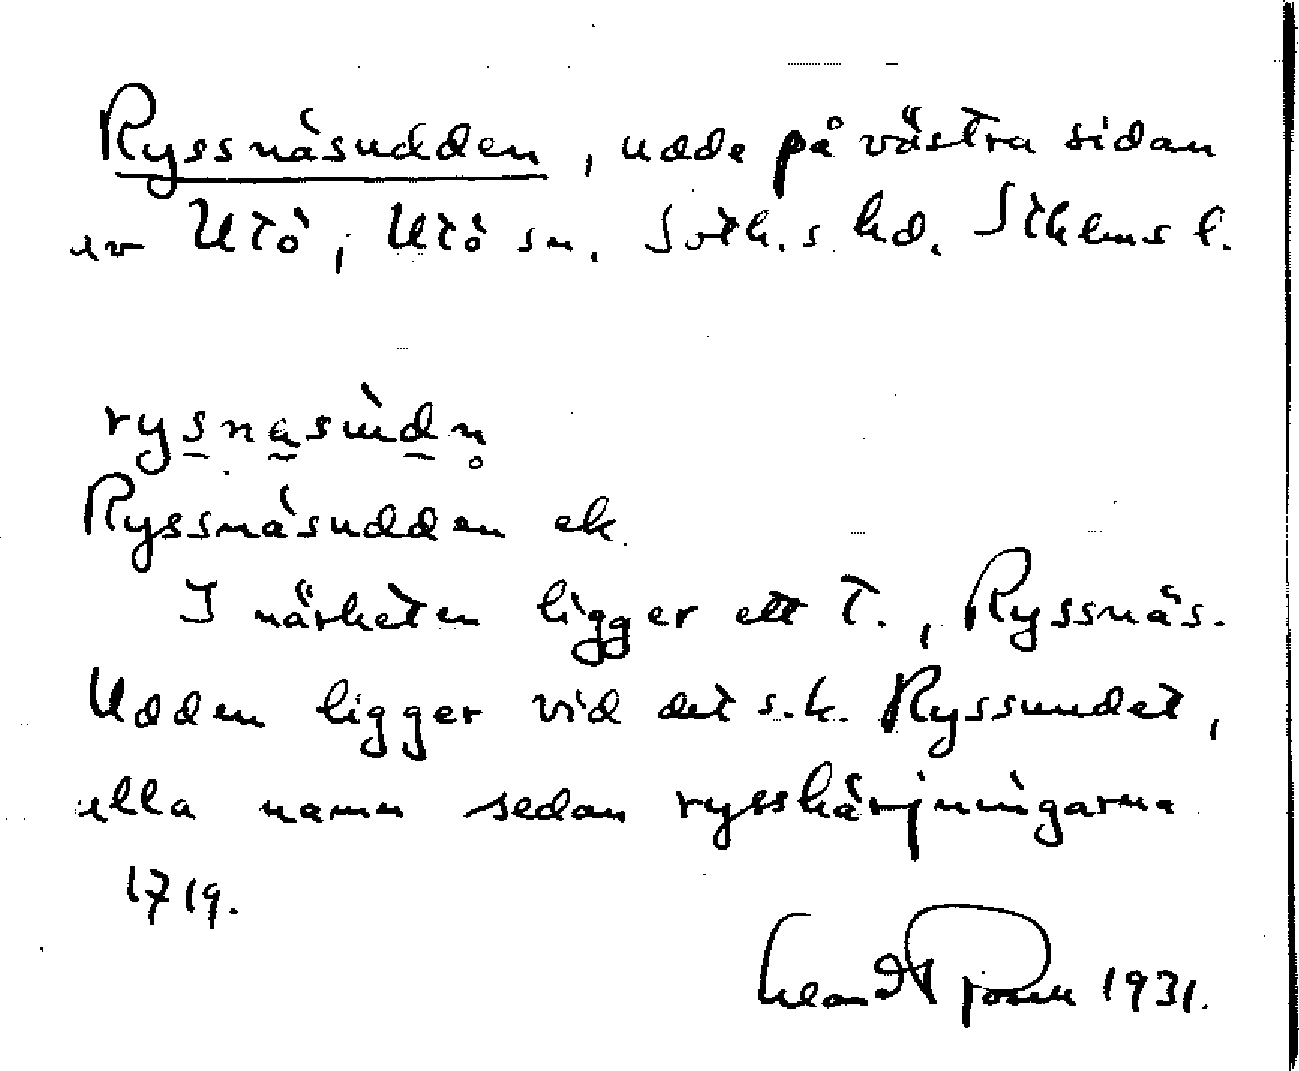 Ryssnäsudden, udde på västra sidan
av Utö, Utö sn. Soth.s hd. Sthlms l.
rysnasùdn̥
Ryssnäsudden ek.
I närheten ligger ett T., Ryssnäs.
Udden ligger vid det s.k. Ryssundet,
alla namn sedan rysshärjningarna
1719.
1931.